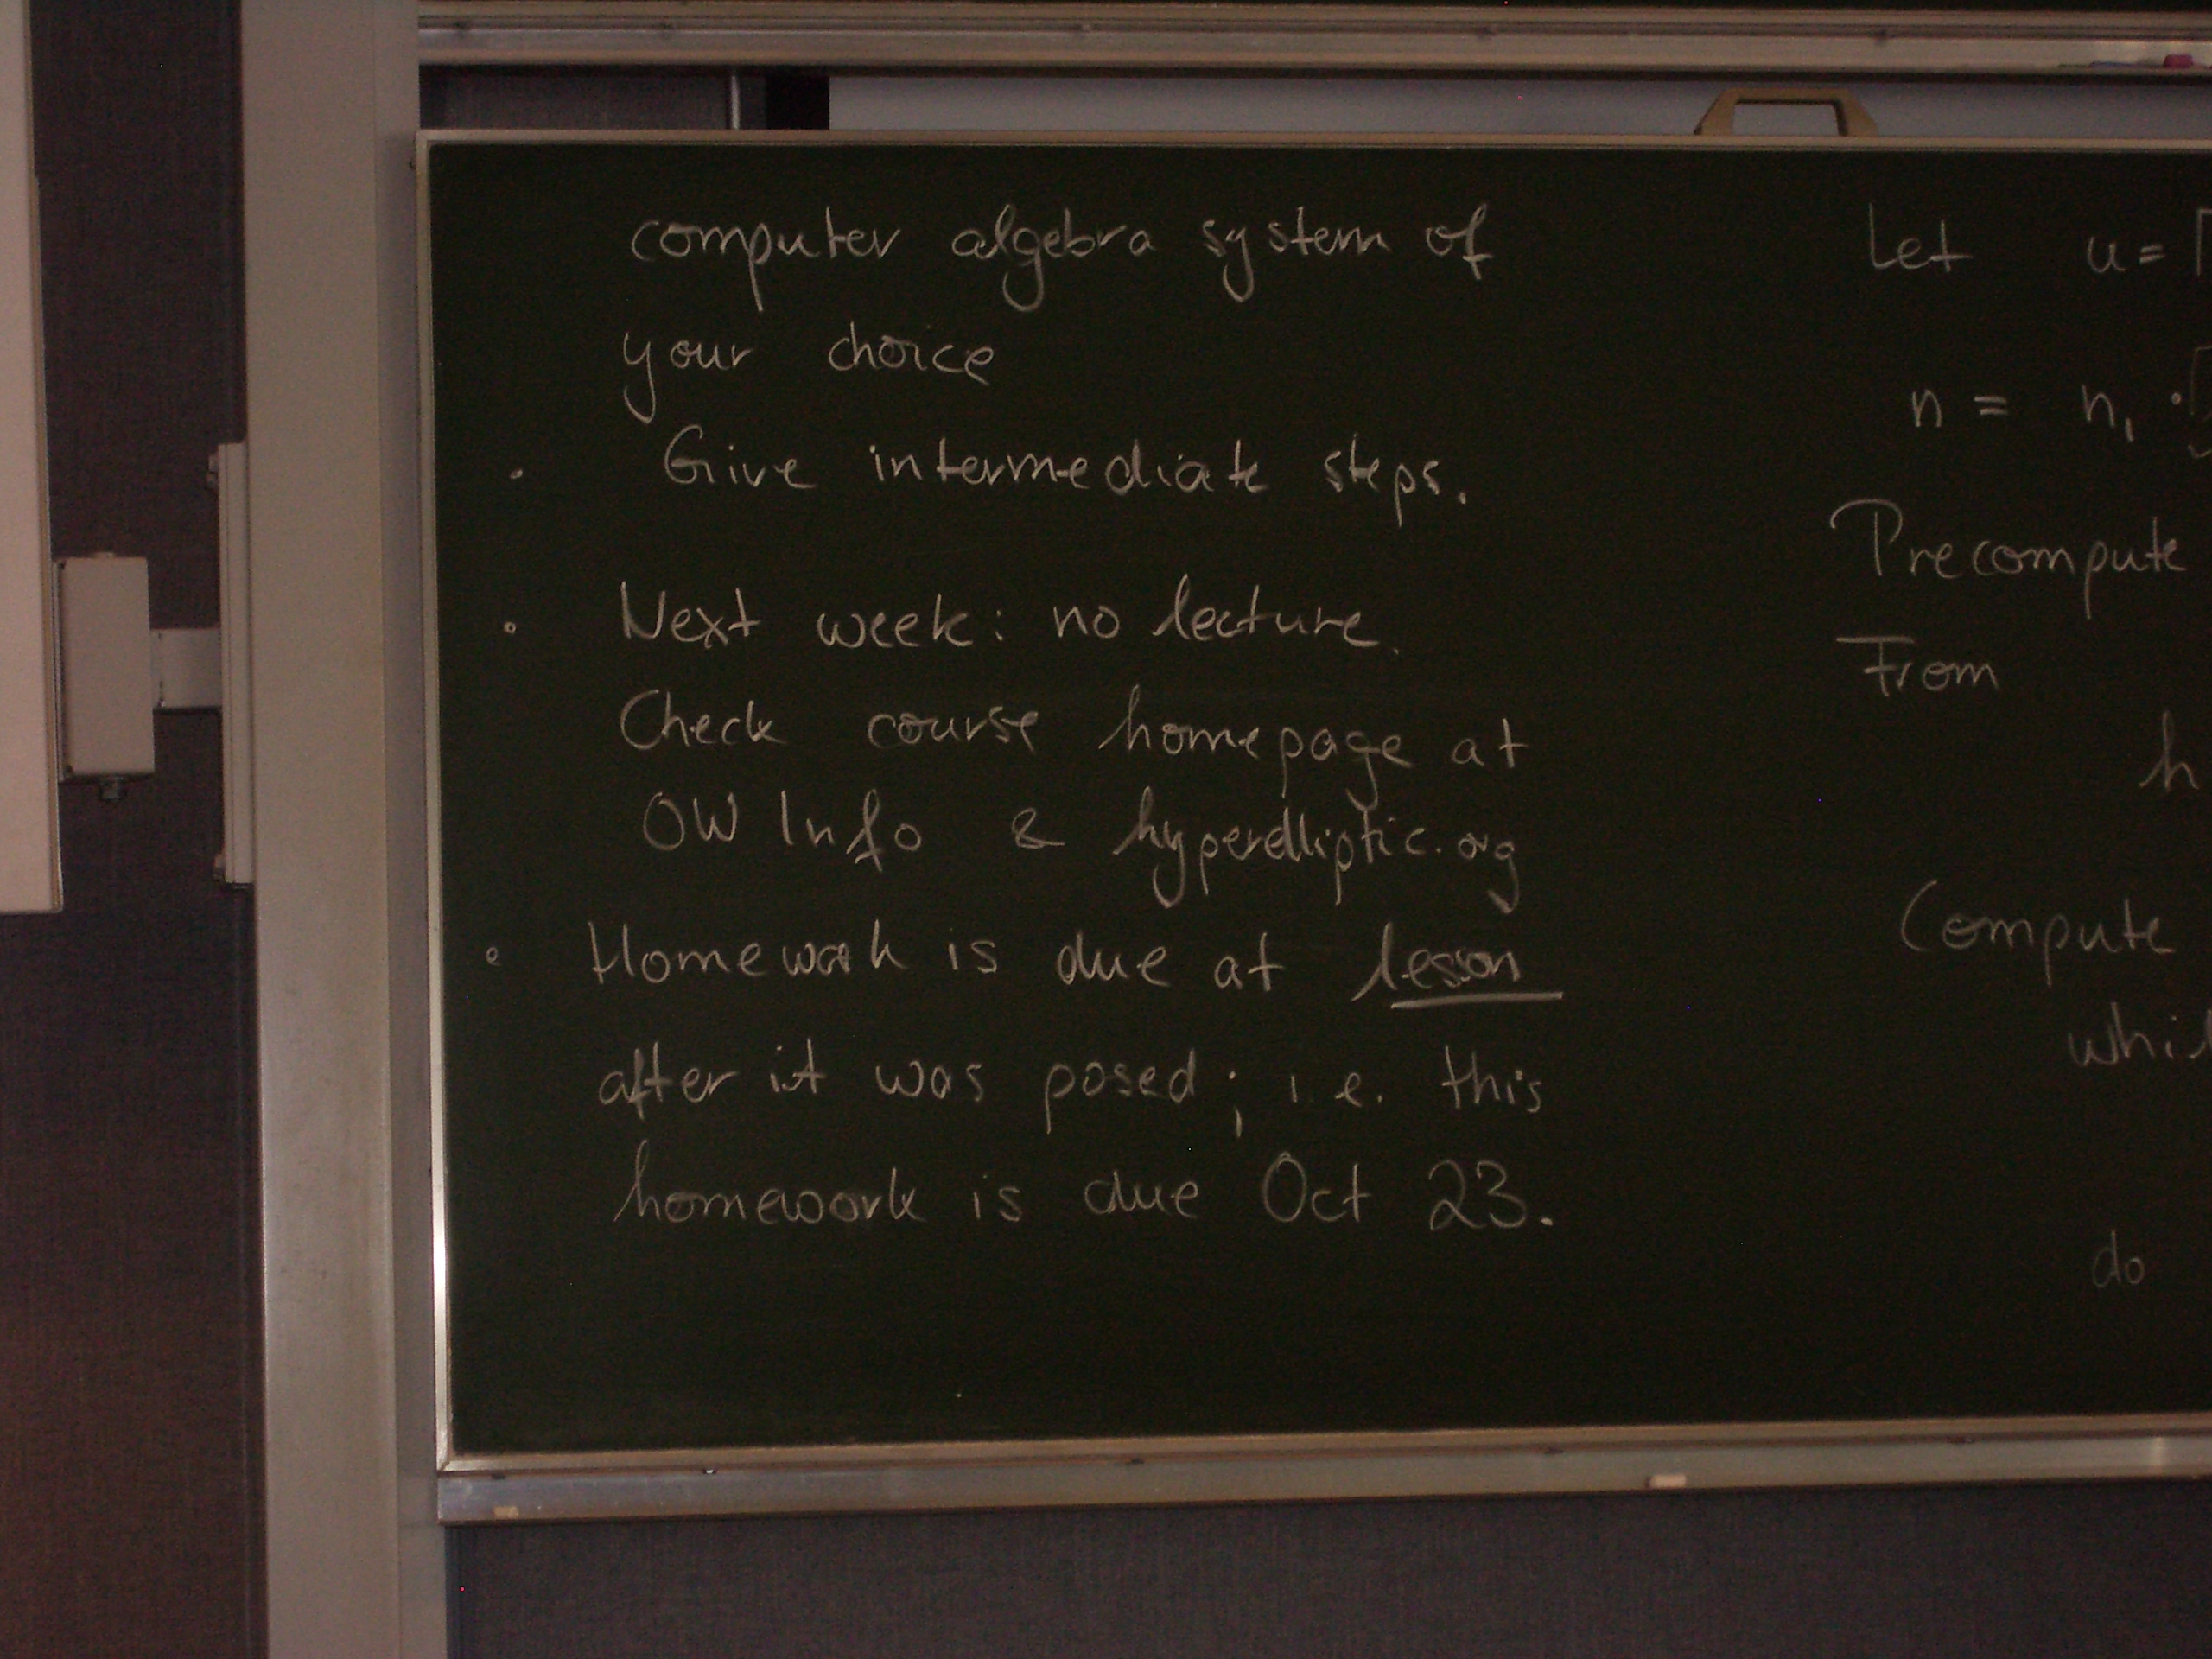 computer algebra system of
your choice
· Give intermediate steps.
· Next week: no lecture.
Check course homepage at
OW Info & hyperelliptic.org
· Homework is due at lesson
after it was posed; i.e. this
homework is due Oct 23.
Let u =
n = n₁ ·
Precompute
From
h
Compute
do